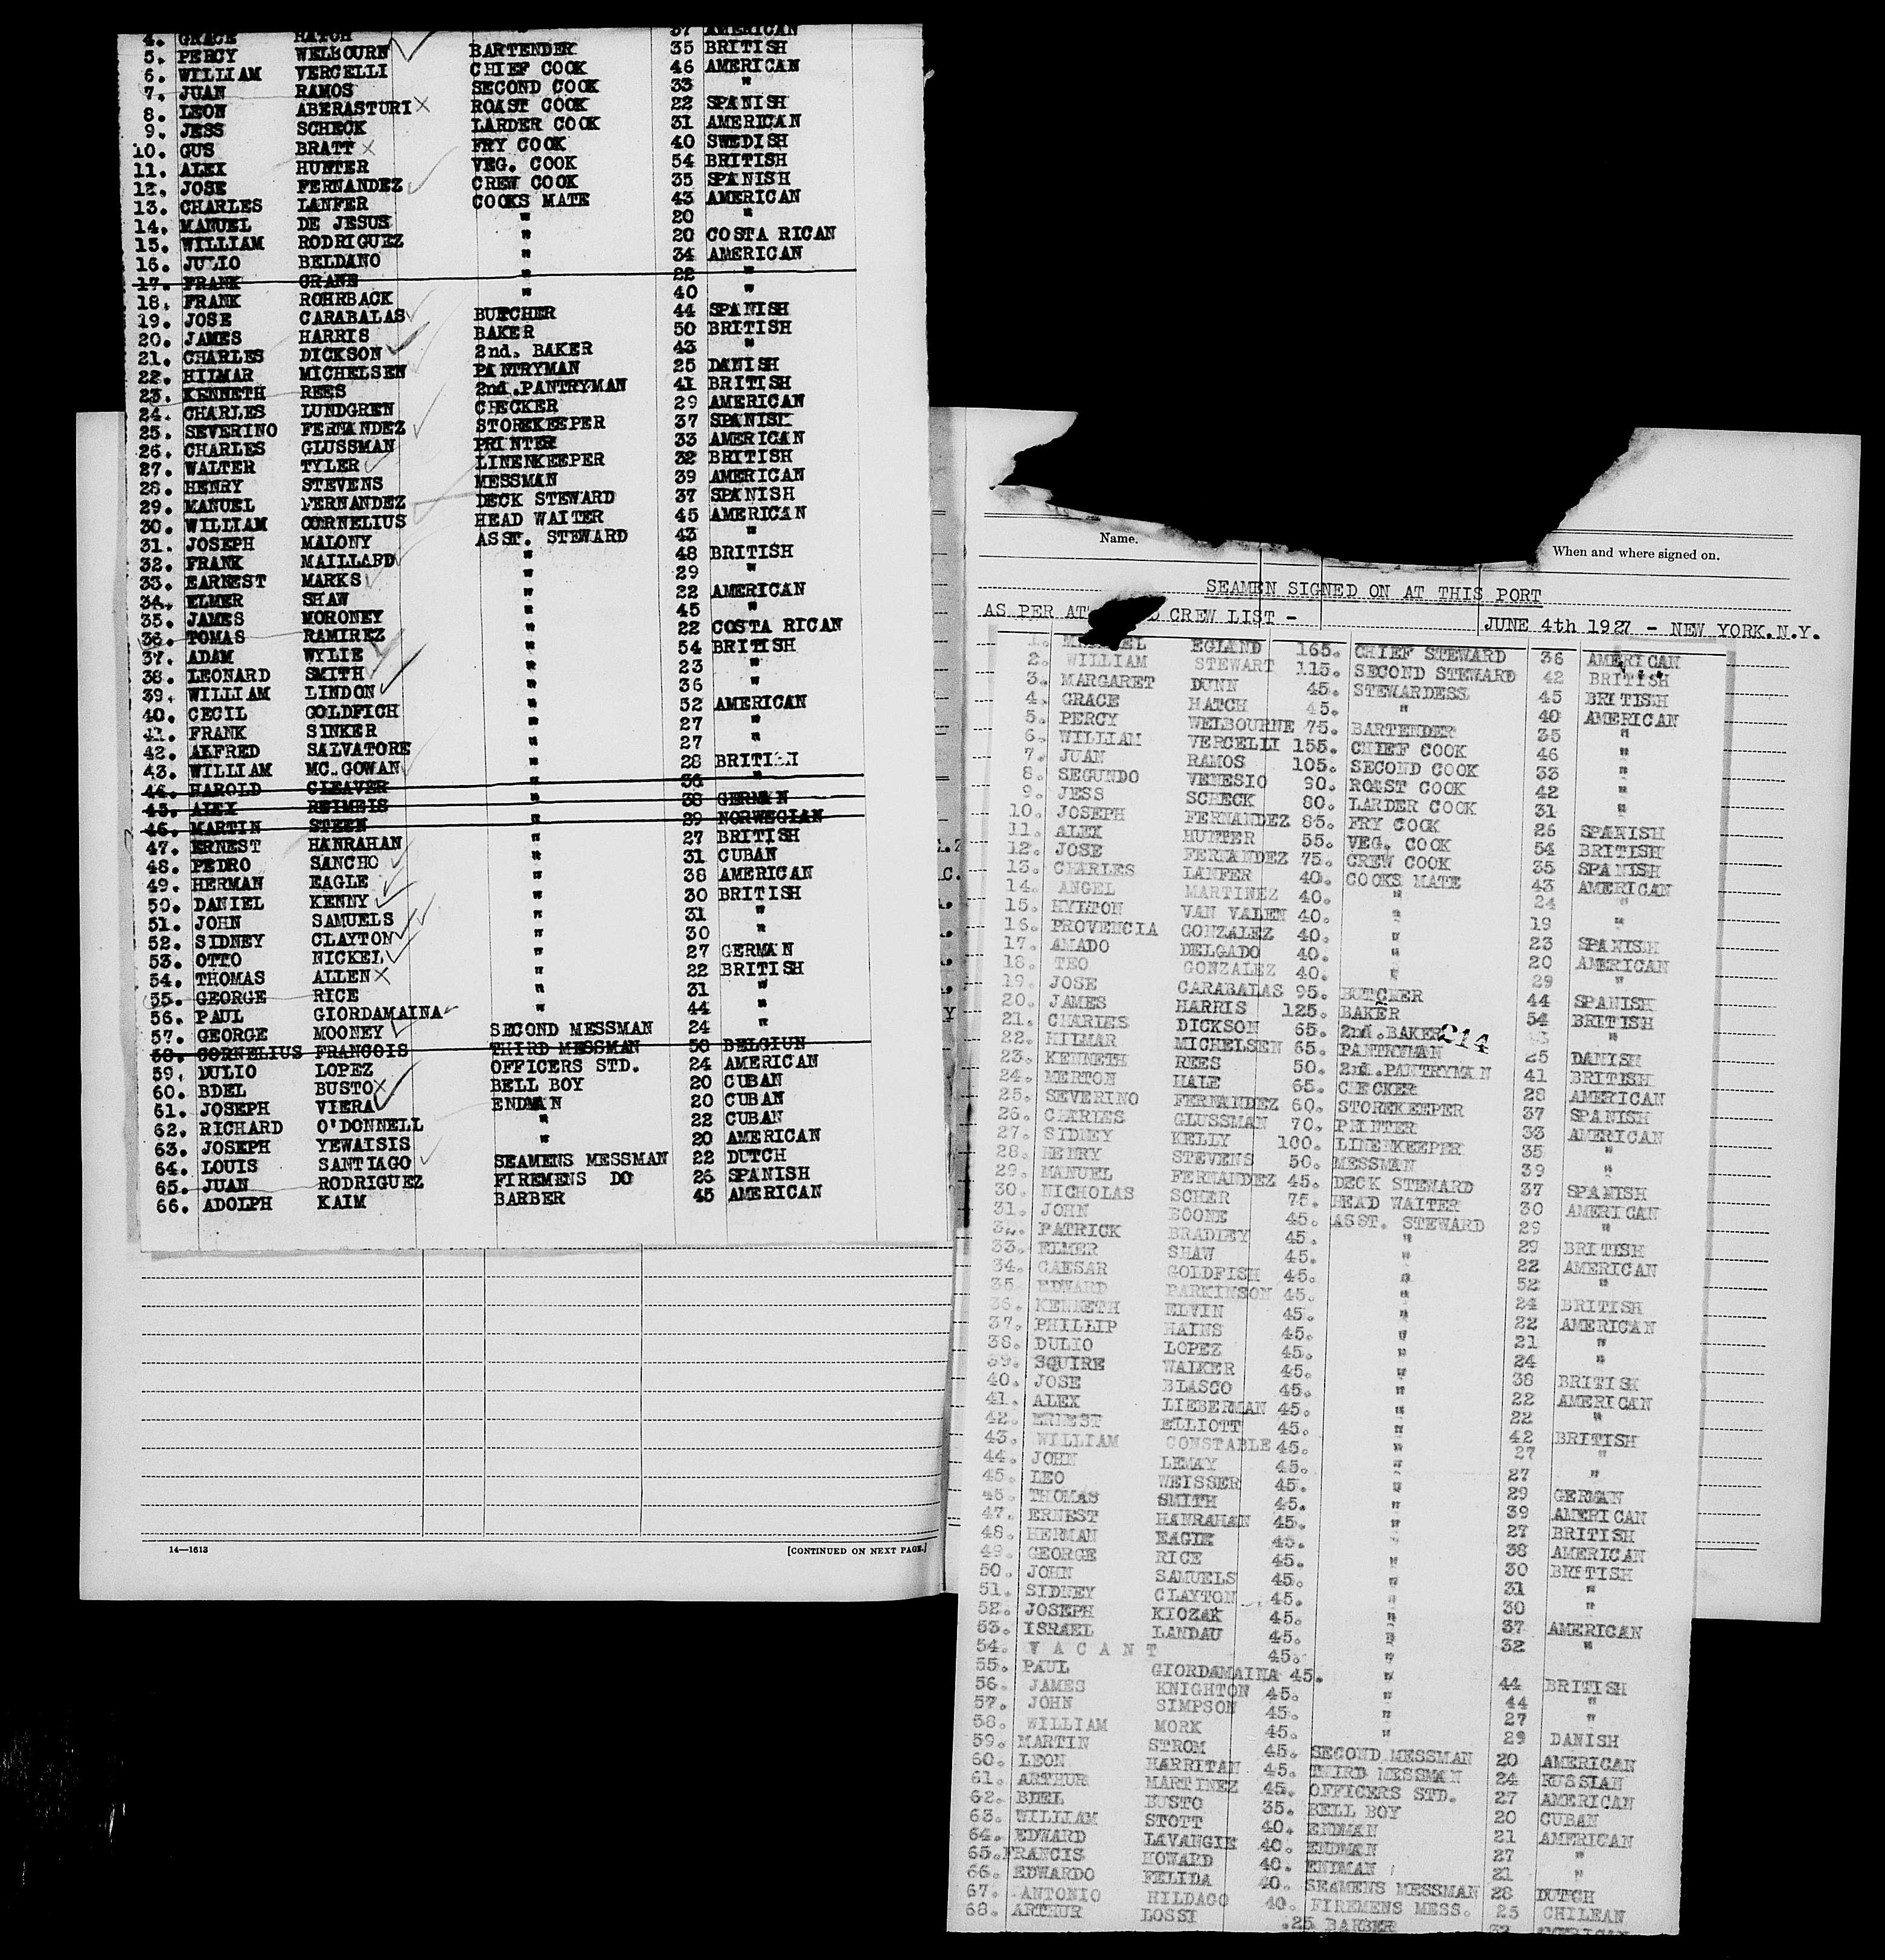 4. GRACE HATCH " 37 AMERICAN
5. PERCY WELBOURN BARTENDER 35 BRITISH
6. WILLIAM VERCELLI CHIEF COOK 46 AMERICAN
7. JUAN RAMOS SECOND COOK 33 "
8. LEON ABERASTURI ROAST COOK 22 SPANISH
9. JESS SCHECK LARDER COOK 31 AMERICAN
10. GUS BRATT FRY COOK 40 SWEDISH
11. ALEX HUNTER VEG. COOK 54 BRITISH
12. JOSE FERNANDEZ CREW COOK 35 SPANISH
13. CHARLES LANFER COOKS MATE 43 AMERICAN
14. MANUEL DE JESUS " 20 "
15. WILLIAM RODRIGUEZ " 20 COSTA RICAN
16. JULIO BELDANO " 34 AMERICAN
17. FRANK CRANE " 22 "
18. FRANK ROHRBACK " 40 "
19. JOSE CARABALAS BUTCHER 44 SPANISH
20. JAMES HARRIS BAKER 50 BRITISH
21. CHARLES DICKSON 2nd. BAKER 43 "
22. HILMAR MICHELSEN PANTRYMAN 25 DANISH
23. KENNETH REES 2nd.PANTRYMAN 41 BRITISH
24. CHARLES LUNDGREN CHECKER 29 AMERICAN
25. SEVERINO FERNANDEZ STOREKEEPER 37 SPANISH
26. CHARLES GLUSSMAN PRINTER 33 AMERICAN
27. WALTER TYLER LINENKEEPER 32 BRITISH
28. HENRY STEVENS MESSMAN 39 AMERICAN
29. MANUEL FERNANDEZ DECK STEWARD 37 SPANISH
30. WILLIAM CORNELIUS HEAD WAITER 45 AMERICAN
31. JOSEPH MALONY ASST. STEWARD 43 "
32. FRANK MAILLARD " 48 BRITISH
33. EARNEST MARKS " 29 "
34. ELMER SHAW " 22 AMERICAN
35. JAMES MORONEY " 45 "
36. TOMAS RAMIREZ " 22 COSTA RICAN
37. ADAM WYLIE " 54 BRITISH
38. LEONARD SMITH " 23 "
39. WILLIAM LINDON " 36 "
40. CECIL GOLDFICH " 52 AMERICAN
41. FRANK SINKER " 27 "
42. ALFRED SALVATORE " 27 "
43. WILLIAM MC.GOWAN " 28 BRITISH
44. HAROLD CLEAVER " 36 "
45. ALEX REIMEIS " 38 GERMAN
46. MARTIN STEEN " 29 NORWEGIAN
47. ERNEST HANRAHAN " 27 BRITISH
48. PEDRO SANCHO " 31 CUBAN
49. HERMAN EAGLE " 38 AMERICAN
50. DANIEL KENNY " 30 BRITISH
51. JOHN SAMUELS " 31 "
52. SIDNEY CLAYTON " 30 "
53. OTTO NICKEL " 27 GERMAN
54. THOMAS ALLEN " 22 BRITISH
55. GEORGE RICE " 31 "
56. PAUL GIORDAMAINA " 44 "
57. GEORGE MOONEY SECOND MESSMAN 24 "
58. CORNELIUS FRANCOIS THIRD MESSMAN 50 BELGIUN
59. DULIO LOPEZ OFFICERS STD. 24 AMERICAN
60. BDEL BUSTO BELL BOY 20 CUBAN
61. JOSEPH VIERA ENDMAN 20 CUBAN
62. RICHARD O'DONNELL " 22 CUBAN
63. JOSEPH YEWAISIS " 20 AMERICAN
64. LOUIS SANTIAGO SEAMENS MESSMAN 22 DUTCH
65. JUAN RODRIGUEZ FIREMENS DO 26 SPANISH
66. ADOLPH KAIM BARBER 45 AMERICAN
14—1613 [CONTINUED ON NEXT PAGE.]
Name. When and where signed on.
SEAMEN SIGNED ON AT THIS PORT
AS PER CREW LIST - JUNE 4th 1927 - NEW YORK.N.Y.
1. EGLAND 165. CHIEF STEWARD 36 AMERICAN
2. WILLIAM STEWART 115. SECOND STEWARD 42 BRITISH
3. MARGARET DUNN 45. STEWARDESS 45 BRITISH
4. GRACE HATCH 45. " 40 AMERICAN
5. PERCY WELBOURNE 75. BARTENDER 35 "
6. WILLIAM VERCELLI 155. CHIEF COOK 46 "
7. JUAN RAMOS 105. SECOND COOK 33 "
8. SEGUNDO VENESIO 90. ROAST COOK 42 "
9. JESS SCHECK 80. LARDER COOK 31 "
10. JOSEPH FERNANDEZ 85. FRY COOK 26 SPANISH
11. ALEX HUNTER 55. VEG. COOK 54 BRITISH
12. JOSE FERNANDEZ 75. CREW COOK 35 SPANISH
13. CHARLES LANFER 40. COOKS MATE 43 AMERICAN
14. ANGEL MARTINEZ 40. " 24 "
15. HYLTON VAN VALEN 40. " 19 "
16. PROVENCIA GONZALEZ 40. " 23 SPANISH
17. AMADO DELGADO 40. " 20 AMERICAN
18. TEO GONZALEZ 40. " 29 "
19. JOSE CARABALAS 95. BUTCHER 44 SPANISH
20. JAMES HARRIS 125. BAKER 54 BRITISH
21. CHARLES DICKSON 65. 2nd.BAKER 214 "
22. HILMAR MICHELSEN 65. PANTRYMAN 25 DANISH
23. KENNETH REES 50. 2nd.PANTRYMAN 41 BRITISH
24. MERTON HALE 65. CHECKER 28 AMERICAN
25. SEVERINO FERNANDEZ 60. STOREKEEPER 37 SPANISH
26. CHARLES GLUSSMAN 70. PRINTER 33 AMERICAN
27. SIDNEY KELLY 100. LINENKEEPER 35 "
28. HENRY STEVENS 50. MESSMAN 39 "
29. MANUEL FERNANDEZ 45. DECK STEWARD 37 SPANISH
30. NICHOLAS SCHER 75. HEAD WAITER 30 AMERICAN
31. JOHN BOONE 45. ASST. STEWARD 29 "
32. PATRICK BRADLEY 45. " 29 BRITISH
33. ELMER SHAW 45. " 22 AMERICAN
34. CAESAR GOLDFISH 45. " 52 "
35. EDWARD PARKINSON 45. " 24 BRITISH
36. KENNETH ELVIN 45. " 22 AMERICAN
37. PHILLIP HAINS 45. " 21 "
38. DULIO LOPEZ 45. " 24 "
39. SQUIRE WALKER 45. " 38 BRITISH
40. JOSE BLASCO 45. " 22 AMERICAN
41. ALEX LIEBERMAN 45. " 22 "
42. ERNEST ELLIOTT 45. " 42 BRITISH
43. WILLIAM CONSTABLE 45. " 27 "
44. JOHN LEMAY 45. " 27 "
45. LEO WEISSER 45. " 29 GERMAN
46. THOMAS SMITH 45. " 39 AMERICAN
47. ERNEST HANRAHAN 45. " 27 BRITISH
48. HERMAN EAGLE 45. " 38 AMERICAN
49. GEORGE RICE 45. " 30 BRITISH
50. JOHN SAMUELS 45. " 31 "
51. SIDNEY CLAYTON 45. " 30 "
52. JOSEPH KIOZAK 45. " 37 AMERICAN
53. ISRAEL LANDAU 45. " 32 "
54. V A C A N T 45. "
55. PAUL GIORDAMAINA 45. " 44 BRITISH
56. JAMES KNIGHTON 45. " 44 "
57. JOHN SIMPSON 45. " 27 "
58. WILLIAM MORK 45. " 29 DANISH
59. MARTIN STROM 45. SECOND MESSMAN 20 AMERICAN
60. LEON HARRITAN 45. THIRD MESSMAN 24 RUSSIAN
61. ARTHUR MARTINEZ 45. OFFICERS STD. 27 AMERICAN
62. BDEL BUSTO 35. BELL BOY 20 CUBAN
63. WILLIAM STOTT 40. ENDMAN 21 AMERICAN
64. EDWARD LAVANGIE 40. ENDMAN 27 "
65. FRANCIS HOWARD 40. ENDMAN 21 "
66. EDWARDO FELIDA 40. SEAMENS MESSMAN 28 DUTCH
67. ANTONIO HILDAGO 40. FIREMENS MESS. 25 CHILEAN
68. ARTHUR LOSSI .25 BARBER 32 AMERICAN